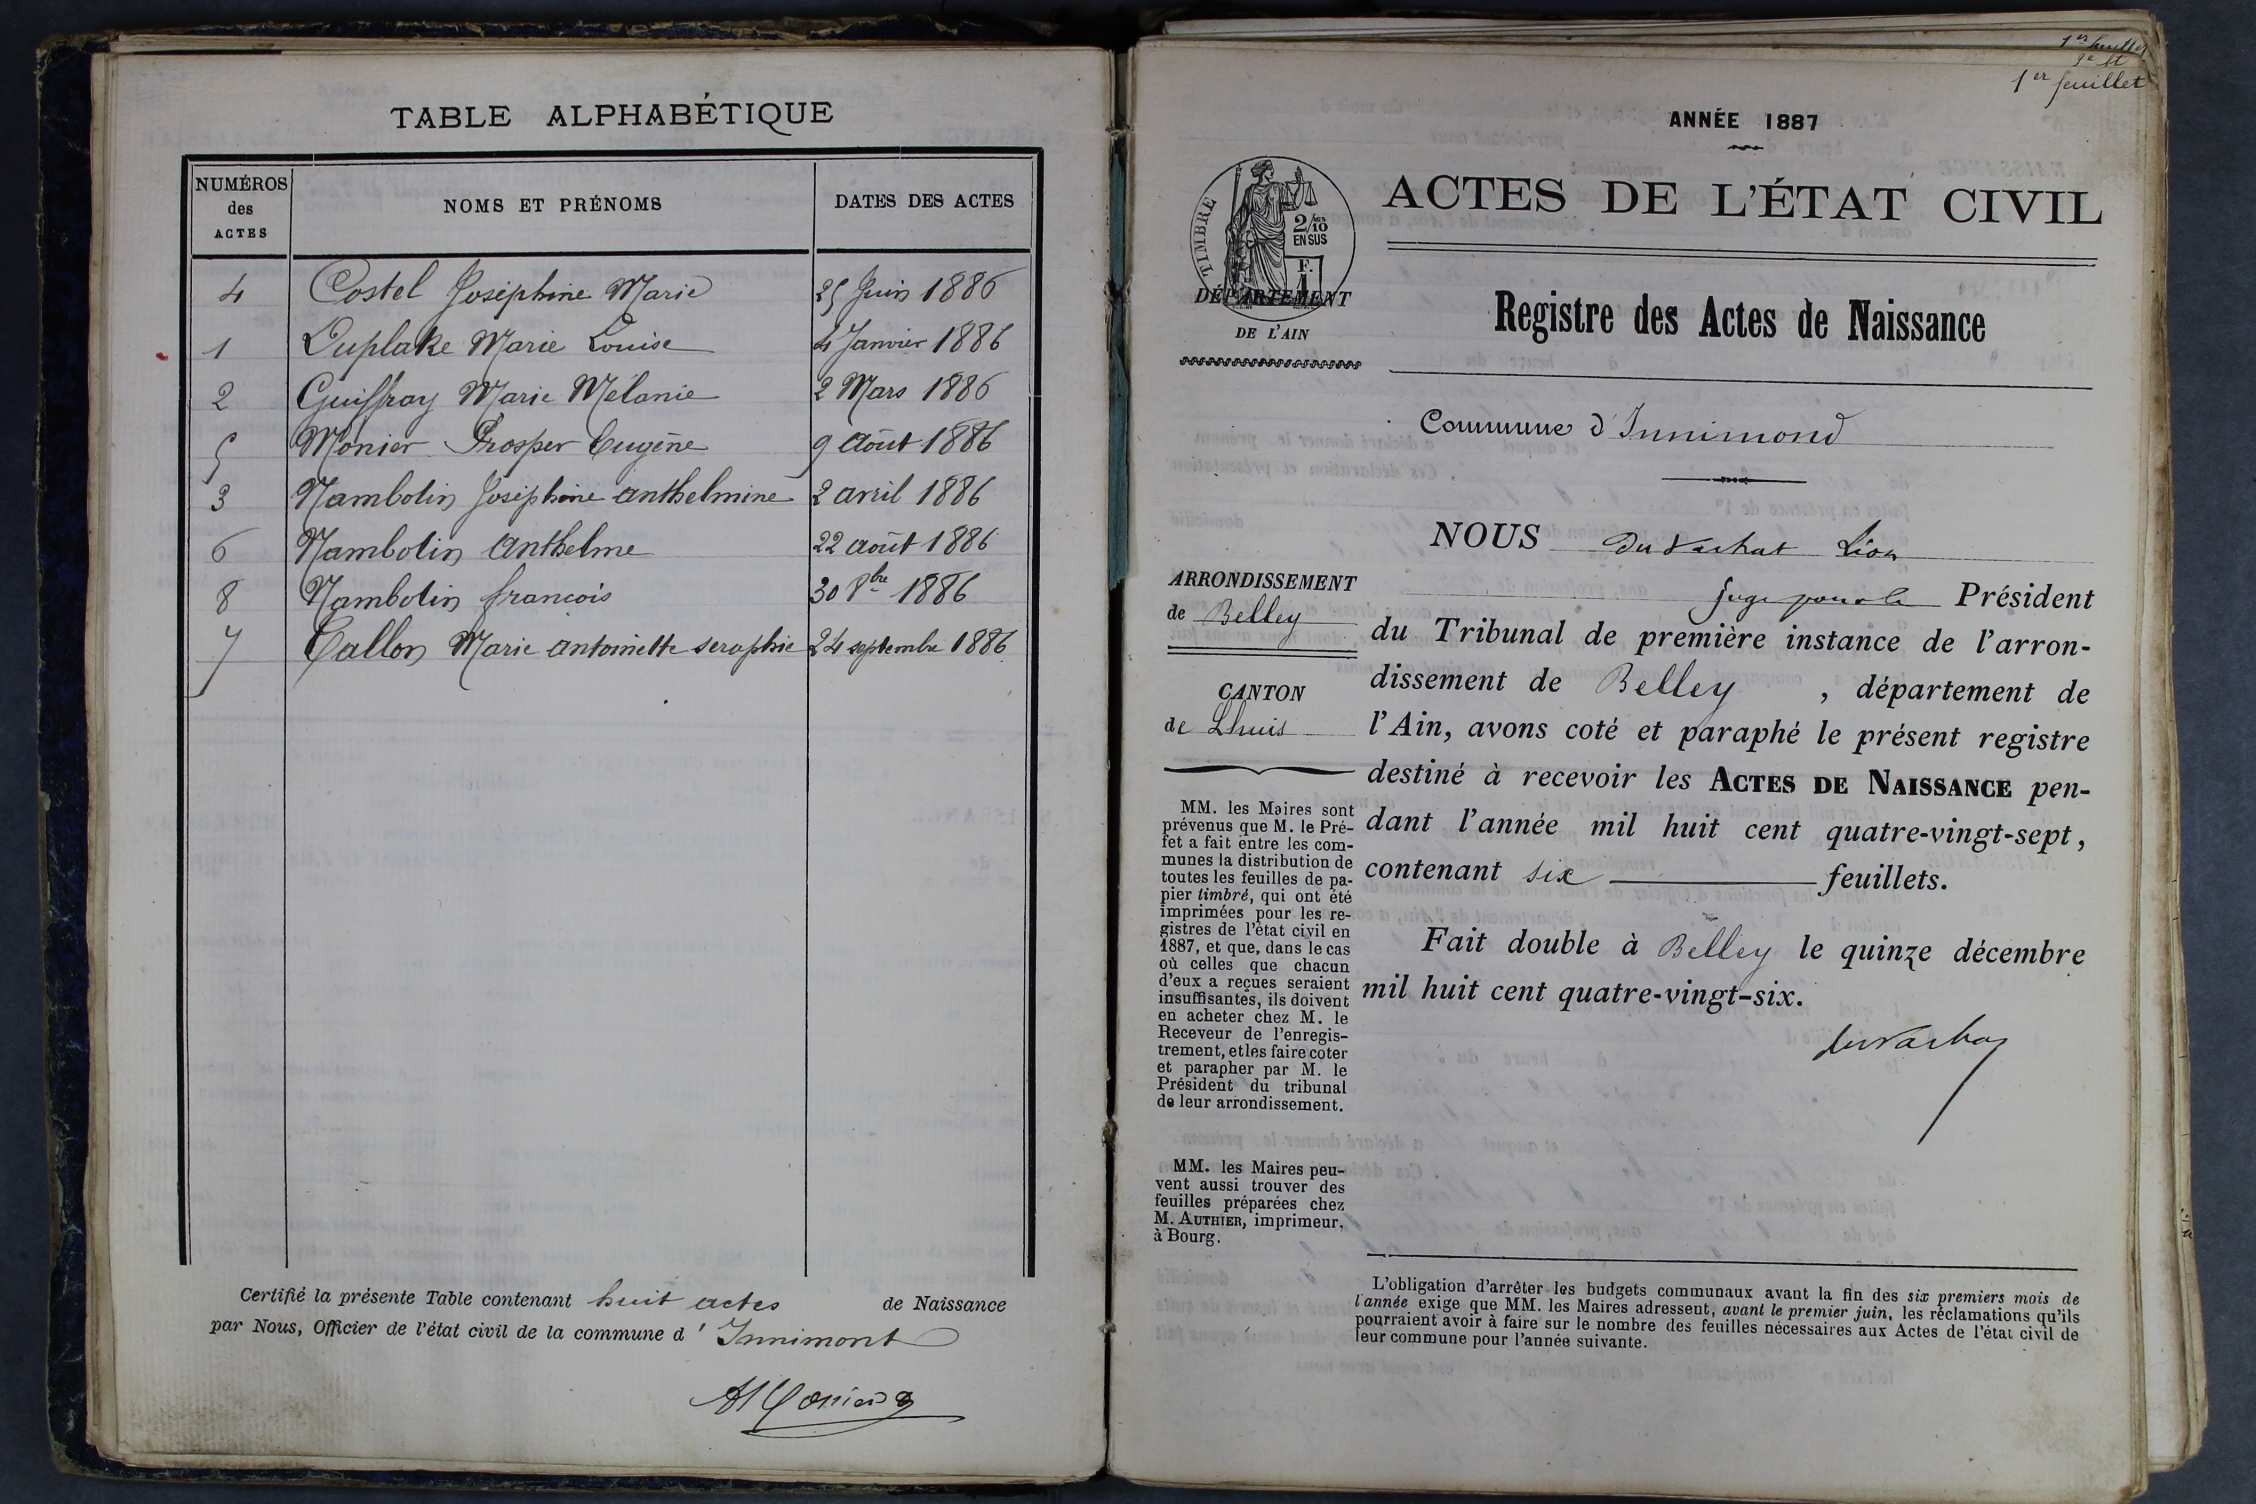 TABLE ALPHABÉTIQUE
NUMÉROS des ACTES NOMS ET PRÉNOMS DATES DES ACTES
4 Costel Joséphine Marie 25 Juin 1886
1 Duplake Marie Louise 4 Janvier 1886
2 Guiffray Marie Mélanie 2 Mars 1886
5 Monier Prosper Eugène 9 Août 1886
3 Nambotin Joséphine Anthelmine 2 avril 1886
6 Nambotin Anthelme 22 août 1886
8 Nambotin françois 30 8bre 1886
7 Tallon Marie Antoinette seraphie 24 septembre 1886
Certifié la présente Table contenant huit actes de Naissance
par Nous, Officier de l'état civil de la commune d' Innimont
1er feuillet
ANNÉE 1887
TIMBRE
2/10
EN SUS
F.
1
DÉPARTEMENT
DE L'AIN
ACTES DE L'ÉTAT CIVIL
Registre des Actes de Naissance
Commune d'Innimond
NOUS du Vachat Léon
Juge pour le Président
du Tribunal de première instance de l'arron-
dissement de Belley, département de
l'Ain, avons coté et paraphé le présent registre
destiné à recevoir les ACTES DE NAISSANCE pen-
dant l'année mil huit cent quatre-vingt-sept,
contenant six feuillets.
Fait double à Belley le quinze décembre
mil huit cent quatre-vingt-six.
du Vachat
ARRONDISSEMENT
de Belley
CANTON
de Lhuis
MM. les Maires sont
prévenus que M. le Pré-
fet a fait entre les com-
munes la distribution de
toutes les feuilles de pa-
pier timbré, qui ont été
imprimées pour les re-
gistres de l'état civil en
1887, et que, dans le cas
où celles que chacun
d'eux a reçues seraient
insuffisantes, ils doivent
en acheter chez M. le
Receveur de l'enregis-
trement, et les faire coter
et parapher par M. le
Président du tribunal
de leur arrondissement.
MM. les Maires peu-
vent aussi trouver des
feuilles préparées chez
M. AUTHIER, imprimeur,
à Bourg.
L'obligation d'arrêter les budgets communaux avant la fin des six premiers mois de
l'année exige que MM. les Maires adressent, avant le premier juin, les réclamations qu'ils
pourraient avoir à faire sur le nombre des feuilles nécessaires aux Actes de l'état civil de
leur commune pour l'année suivante.